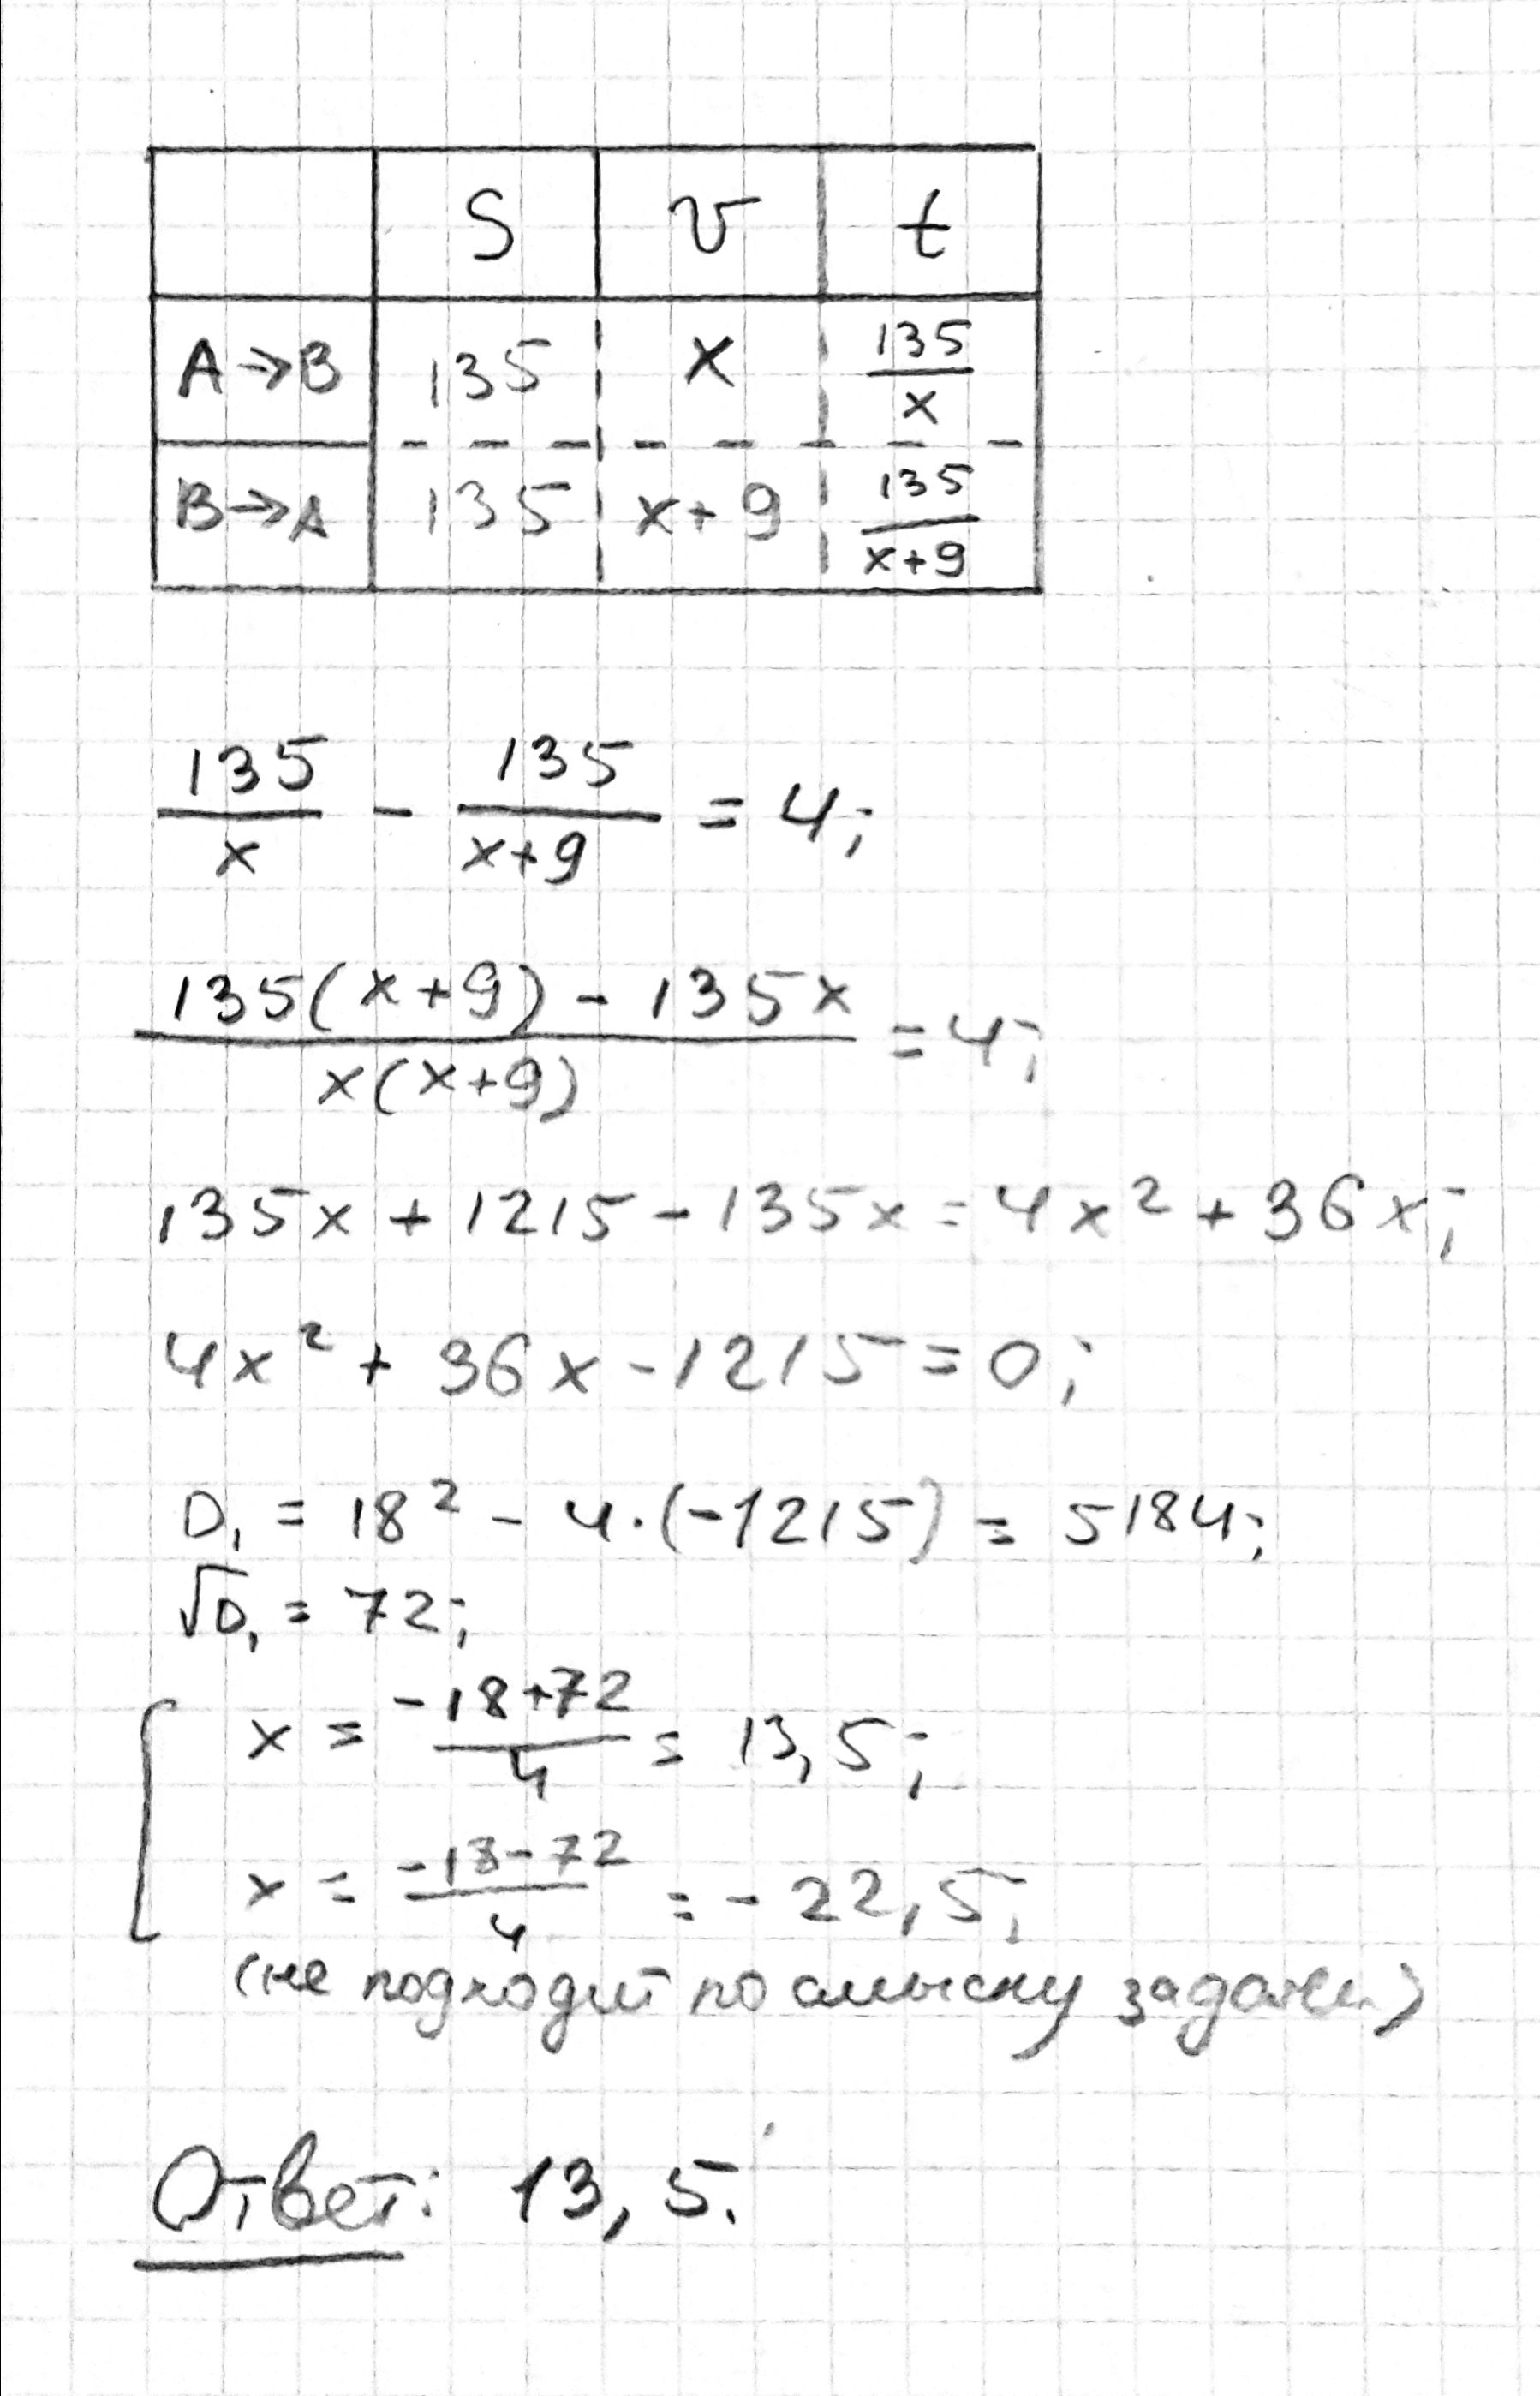 S v t
A→B 135 x 135/x
B→A 135 x+9 135/(x+9)
135/x - 135/(x+9) = 4;
(135(x+9) - 135x)/(x(x+9)) = 4;
135x + 1215 - 135x = 4x² + 36x;
4x² + 36x - 1215 = 0;
D₁ = 18² - 4·(-1215) = 5184;
√D₁ = 72;
x = (-18+72)/4 = 13,5;
x = (-18-72)/4 = -22,5;
(не подходит по смыслу задачи)
Ответ: 13,5.